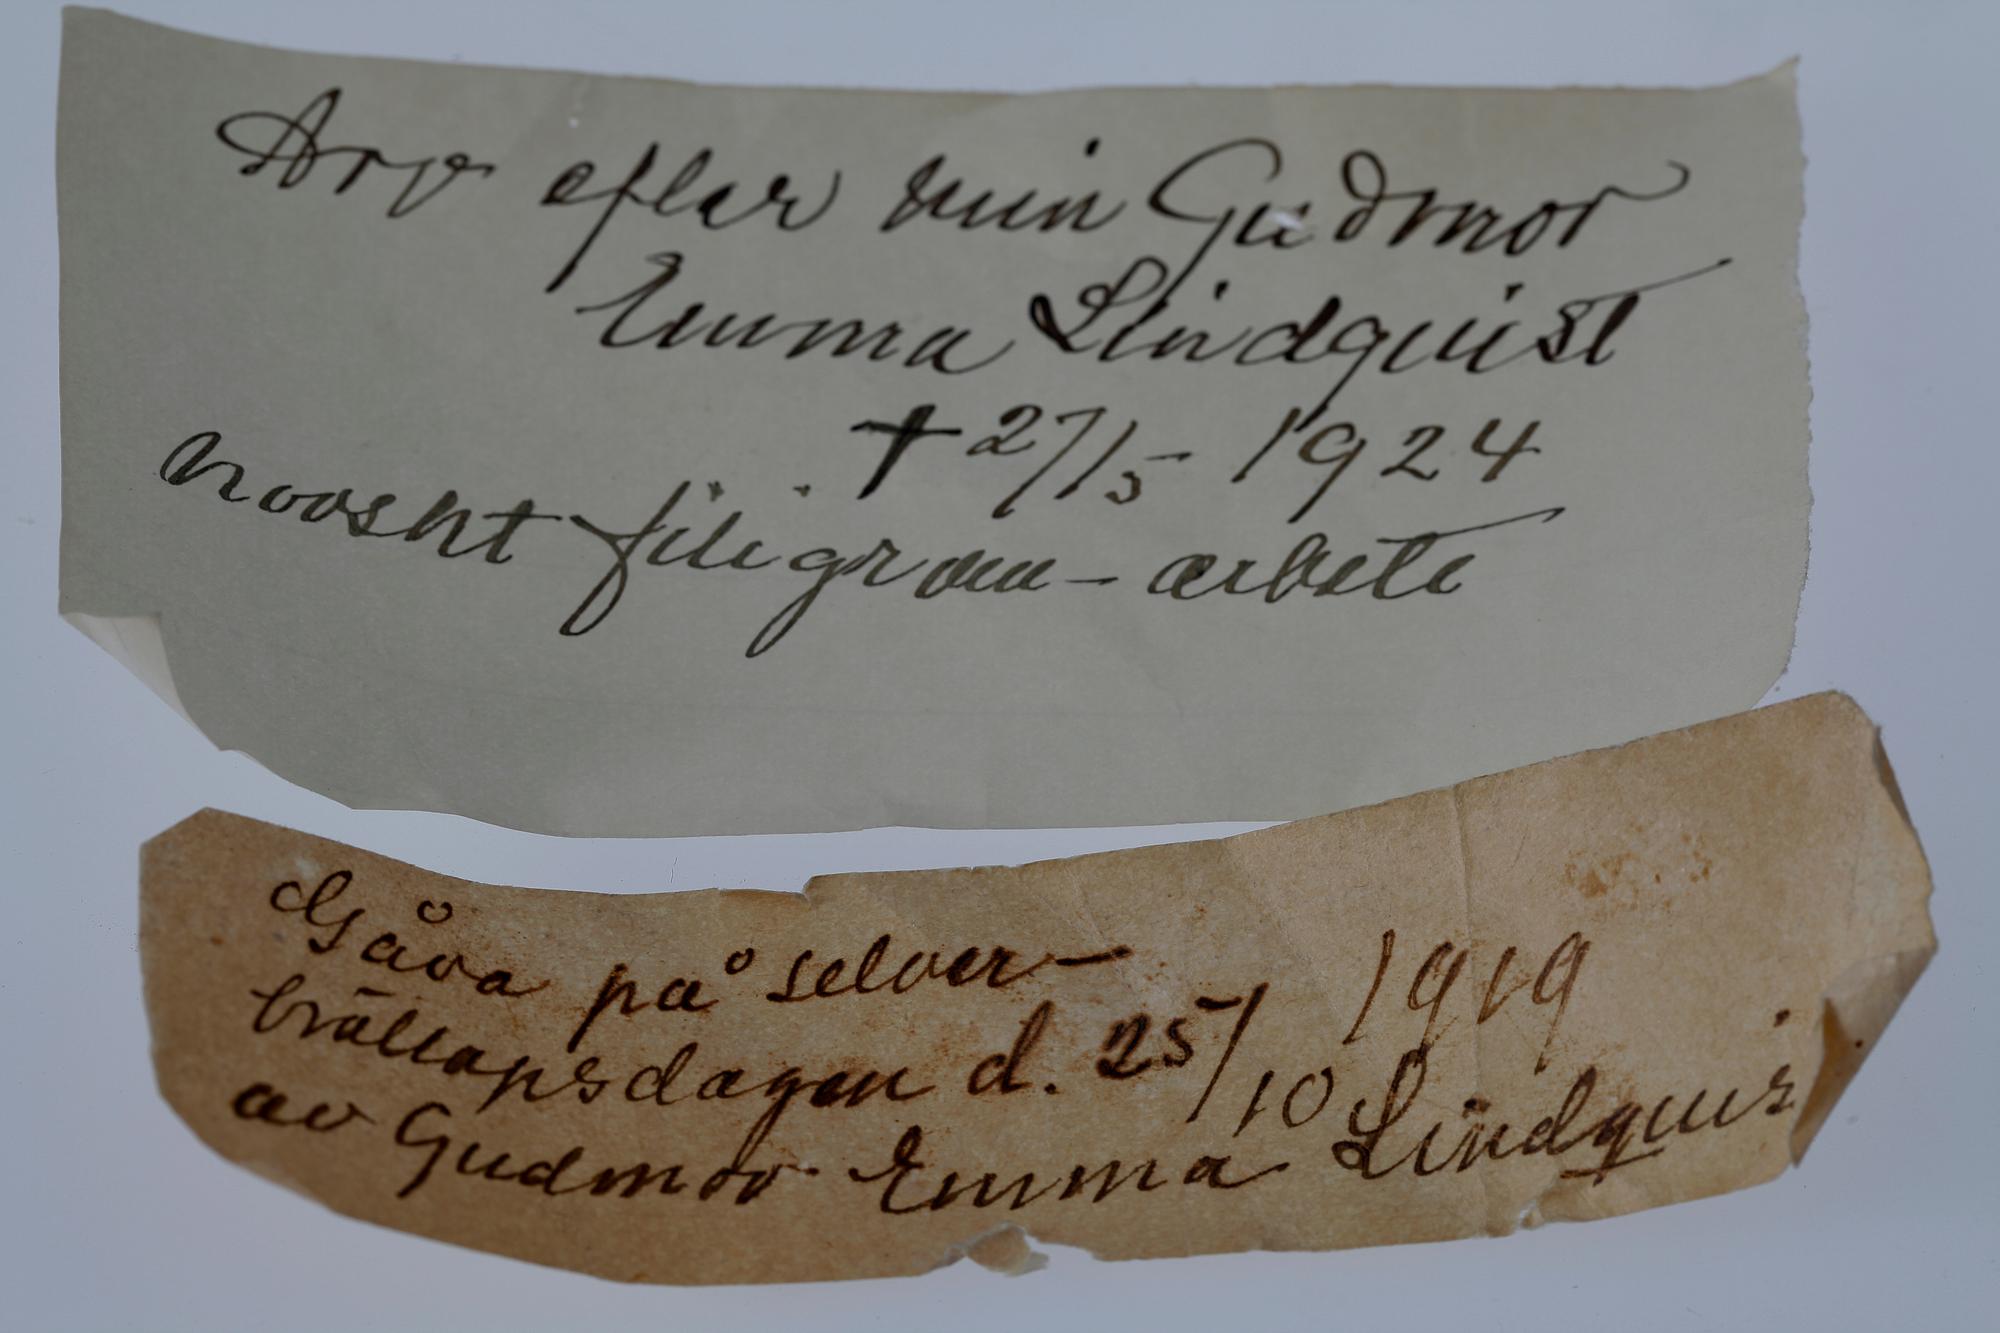 Arv efter min Gudmor
Emma Lindquist
† 27/5 1924
Norskt filigran-arbete
Gåva på selver-
bröllopsdagen d. 25/10 1919
av Gudmor Emma Lindquis